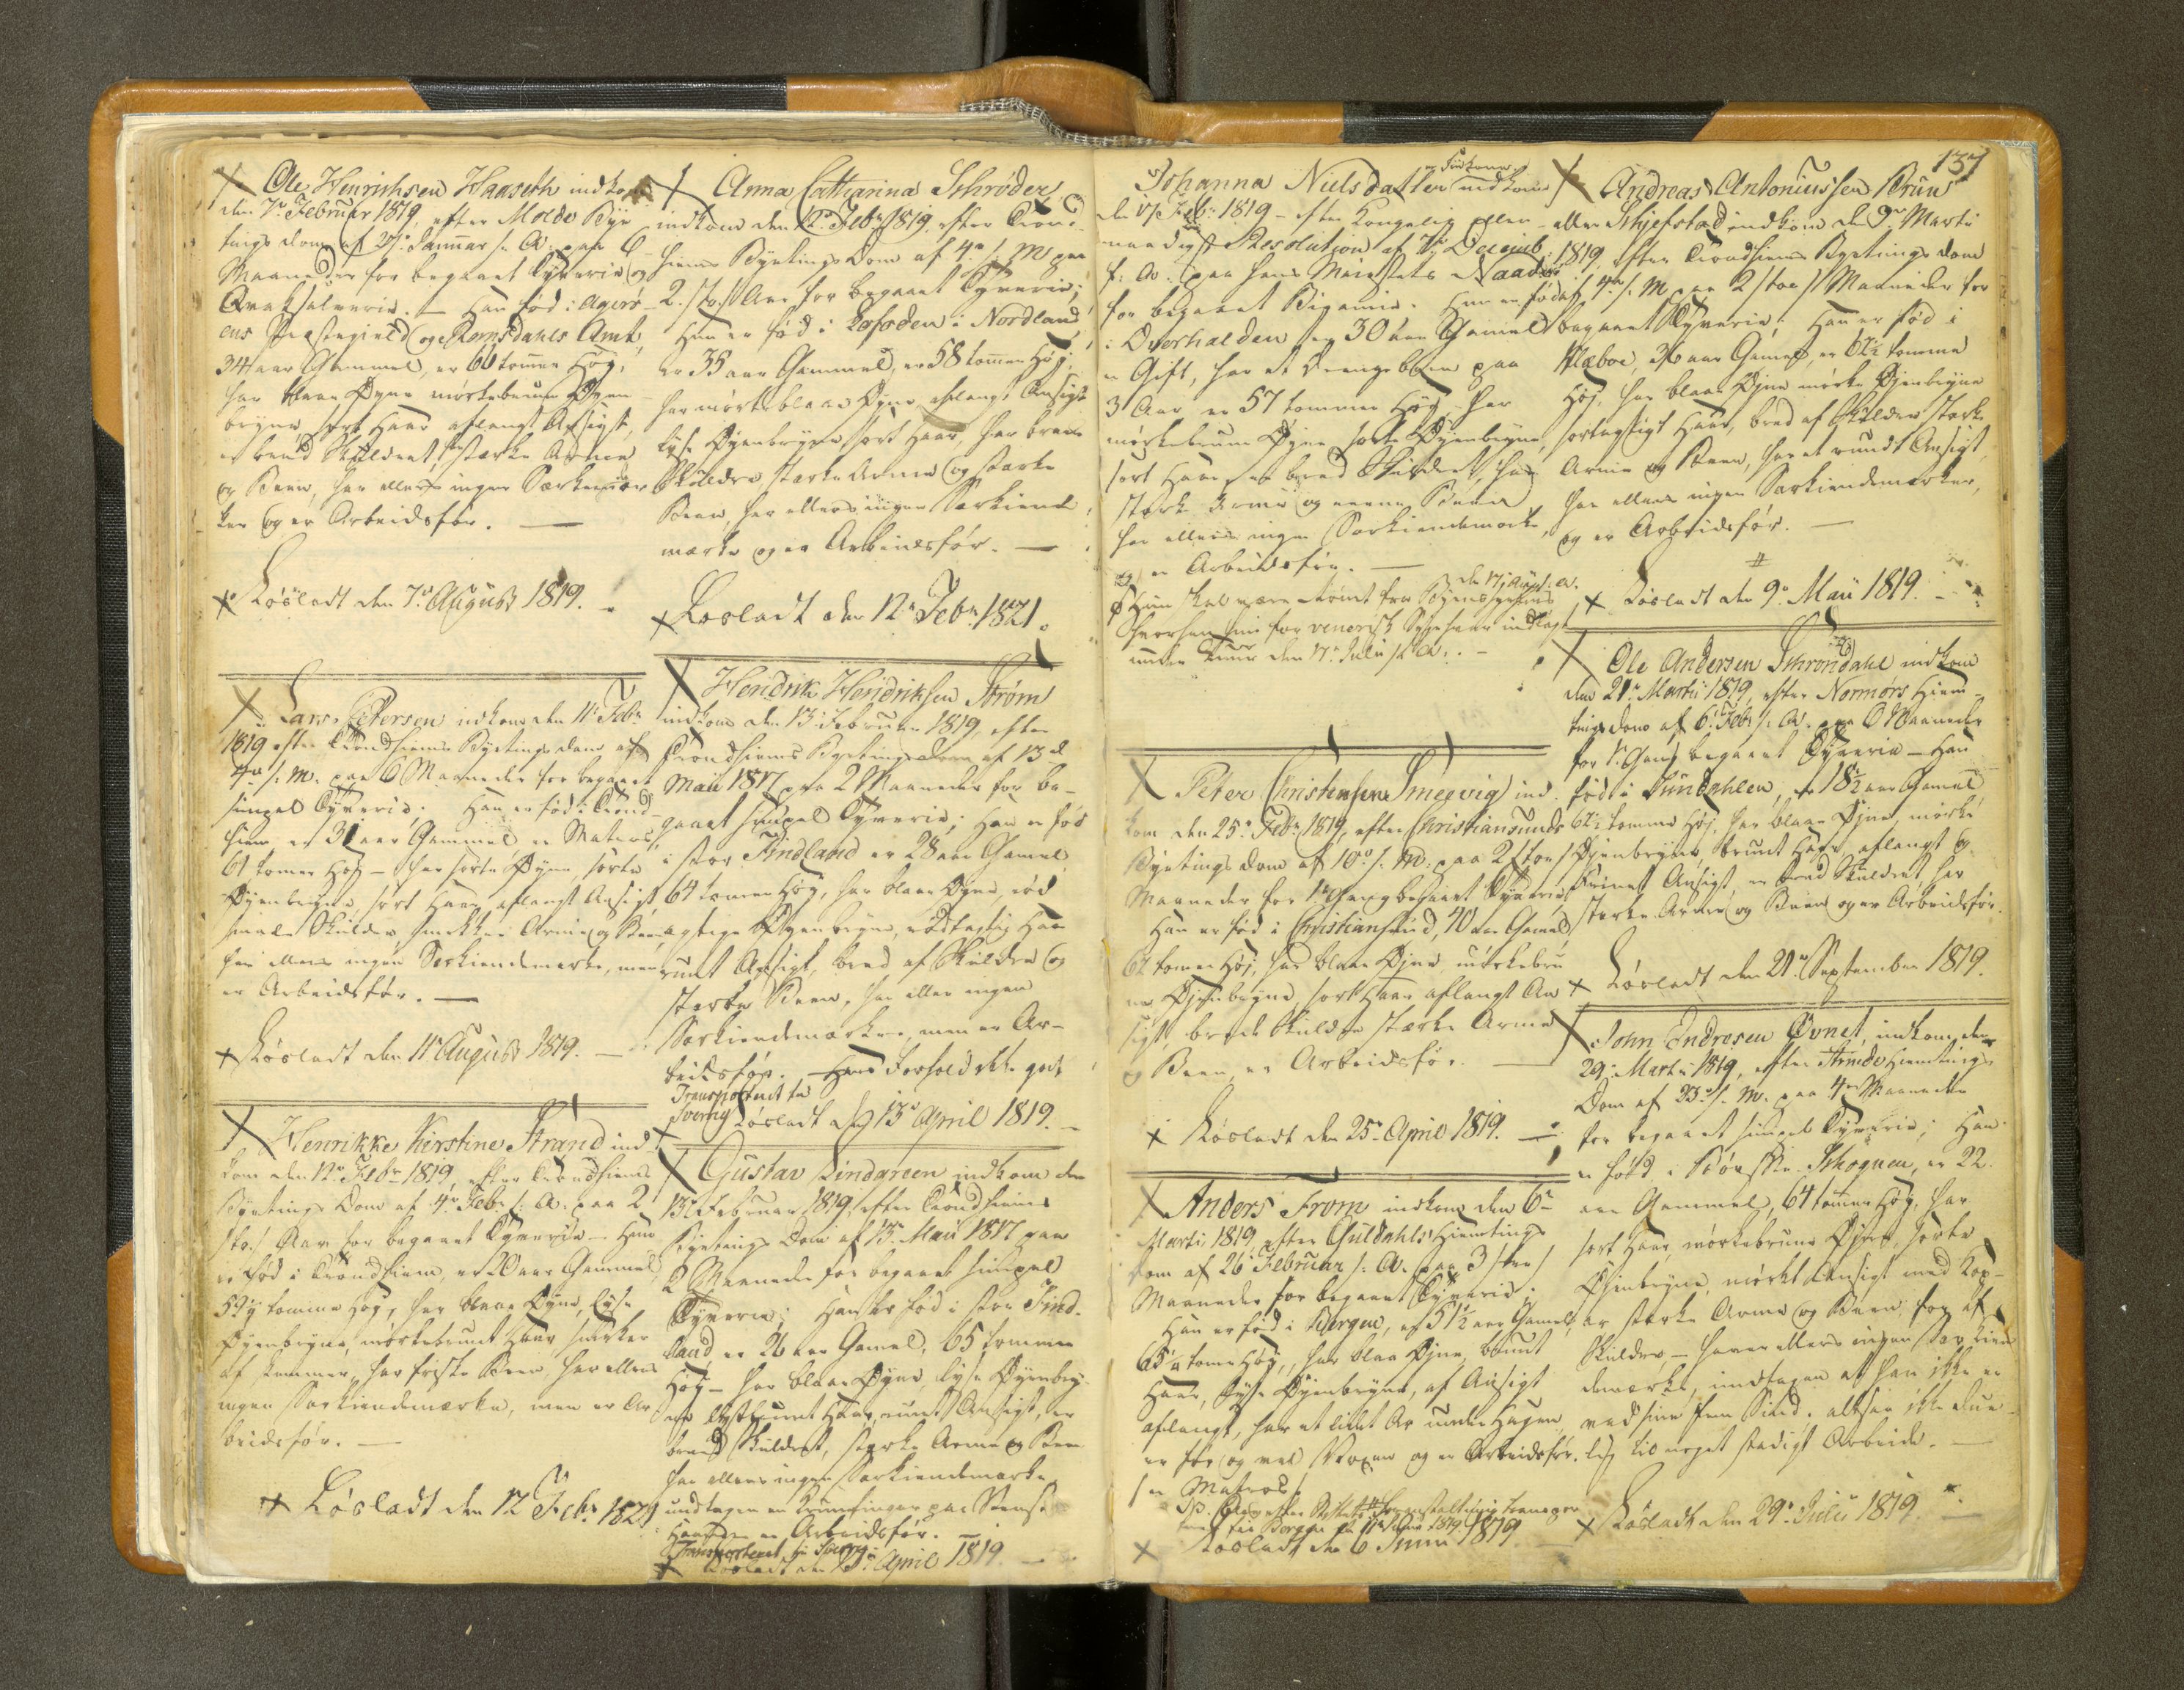 Ole Henrichsen Haaseth indkom
den 7de Februar 1819, efter Molde Bye
tings dom af 27de Januar s: A: paa 6
Maaneder for begaaet Tyverie og
Qvaksalverie. — Han fød i Agerø
ens Præstegield og Romsdahls Amt,
34 aar Gammel, er 66 tommer Høy,
har blaae Øyne mørkebrune Øyen
bryne, sort Haar aflangt Ansigt,
er bred Skuldret, stærke Arme
og Been, har ellers ingen Særkiendemær
ker og er Arbeidsfør. —
Løsladt den 7de August 1819.
Lars Petersen indkom den 11te Febr
1819 efter Trondhiems Byetings dom af
4de s. M. paa 6 Maaneder for begaaet
simpel Tyverie; Han er fød i Trond
hiem, er 31 aar Gammel, er Matros,
61 tomer Høy — har sorte Øyne, sorte
Øyenbryne, sort Haar, aflangt Ansigt
smale Skulder smekkre Arme og Been,
har ellers ingen Særkiendemærke, men
er Arbeidsfør. —
Løsladt den 11te August 1819. —
Henrikke Kirstine Strand ind
kom den 12te Febr 1819, efter Trondhiems
Byetings Dom af 4de Febr s. A. paa 2
/to/ Aar for begaaet Tyverie — Hun
er fød i Trondhiem, er 20 aar Gammel,
59½ tomme Høy, har blaae Øyne, lyse
Øyenbryne, mørkebrunt Haar, smekker
af Lemmer, har friske Been, har ellers
ingen Særkiendemærke, men er Ar
beidsfør. —
Løsladt den 12 Febr 1821
Anna Catharina Schrøder
indkom den 12te Febr 1819, efter Trond
hiems Byetings Dom af 4de s. M. paa
2. /to/ Aar for begaaet Tyverie;
Hun er fød i Lofoden i Nordland
er 35 aar Gammel, er 58 tommer Høy;
har mørkeblaae Øyne, aflangt Ansigt
lyse Øyenbryne sort Haar, har brede
Skuldre, stærke Arme og stærke
Been, har ellers ingen Særkiende
mærke og er Arbeidsfør. —
Løsladt den 12te Febr 1821.
Hendrik Hendriksen Strøm
indkom den 13de Februar 1819, efter
Trondhiems Byetings dom af 13de
Maii 1817 paa 2 Maaneder for be-
gaaet simpel Tyverie; Han er fød
i stor Findland er 28 aar Gamel
64 tommer Høy, har blaae Øyne, rød
agtige Øyenbryne, rødtagtig Haar
rundt Ansigt, bred af Skuldre og
stærke Been, har eller ingen
Særkiendemærker, men er Ar-
beidsfør. — Hans Forhold ikke godt
Transporteret til
Sverrig Løsladt den 13de April 1819. —
Gustav Lindgreen indkom den
13de Februar 1819, efter Trondhiems
Byetings Dom af 13de Maii 1817 paa
2 Maaneder for begaaet simpel
Tyverie; Han er fød i stor Find
land er 26 aar Gamel, 65 tommer
Høy — har blaae Øyne, lyse Øyenbry
ne lysebrunt Haar, rundt Ansigt, er
bred Skuldret, stærke Arme og Been
har ellers ingen Særkiendemærke
undtagen en Krumfinger paa Venstre
Haand er Arbeidsfør.
Transporteret til Sverrig
Løsladt den 13de April 1819. —
Johanna Nielsdatter indkom
den 17 Febr 1819 — efter Kongelig aller
naadigst Resolution af 7de Decemb.
f. A. paa Hans Maiestets Naade
for begaaet Bigamie. Hun er fød
i Overhalden er 30 aar Gammel
er Gift, har et Drengebarn paa
3 Aar er 57 tommer Høy — har
mørkebrune Øyne sorte Øyenbryne,
sort Haar, er bred Skuldret, har
stærke Arme og Been
har ellers ingen Særkiendemærke,
og er Arbeidsfør. —
den 17 August s. A.
for venerisk Syge indlagt
under Cuur den 17de Julii s. A. —
Peter Christensen Smegvig ind
kom den 25de Febr 1819, efter Christiansunds
Byetings dom af 10de s. M. paa 2 /toe/
Maaneder for 1te Gang begaaet Tyverie
Han er fød i Christiansund, 40 aar Gamel
62 tomer Høj, har blaae Øjne, mørkebru
ne Øjenbryne, sort Haar aflangt An
sigt, brede Skuldre stærke Arme
og Been, er Arbeidsfør. —
Løsladt den 25de April 1819. —
Anders From indkom den 6te
Martii 1819, efter Guldahls Hiemtings
dom af 26 Februar s. A. paa 3 /tre/
Maaneder for begaaet Tyverie;
Han er fød i Bergen, er 51½ aar Gamel,
65¼ tome Høy, har blaae Øjne, brunt
Haar, lyse Øyenbryne, af Ansigt
aflangt, har et lidet Ar under Hagen,
er før og vel Voxen og er Arbeidsfør.
/er Matros/
til Bergen 1819
Løsladt den 6 Junii 1819
137
Andreas Antoniussen Bruun
eller Skjefstad indkom den 9de Martii
1819, efter Trondhiems Byetings dom
af 4de s. M. paa 2 /toe/ Maaneder for
begaaet Tyverie; Han er fød i
Klæboe, 36 aar Gamel, er 62½ tomme
Høj, har blaae Øjne mørke Øjenbryne
sortagtigt Haar, bred af Skulder stærke
Arme og Been, har et rundt Ansigt,
har ellers ingen Særkiendemærker,
og er Arbeidsfør. —
Løsladt den 9de Maii 1819. —
Ole Andersen Schrøndahl indkom
den 21de Martii 1819, efter Normørs Hiem-
tings dom af 6te Febr s. A. paa 6 Maaneder
for 1te Gang begaaet Tyverie — Han
fød i Sundahlen, er 18½ aar Gamel
62½ tomme Høj, har blaae Øjne, mørke
Øjenbryne, brunt Haar, aflangt og
Ansigt, er bred Skuldret har
stærke Arme og Been og er Arbeidsfør.
Løsladt den 21de September 1819.
John Indresen Øvnet, indkom den
29de Martii 1819, efter Hiemtings
Dom af 23de s. M. paa 4re Maaneder
for begaaet simpel Tyverie; Han
er fød i Børsskognen, er 22
aar Gammel, 64 tommer Høj, har
sort Haar, mørkebrune Øjne, sorte
Øjenbryne, mørkt Ansigt med Kop-
ar stærke Arme og Been, før af
Skulder — har ellers ingen Særkien
demærke, undtagen at han ikke er
ved sine Sind, altsaa ikke due
lig til noget stadigt Arbeide. —
Løsladt den 29de Julii 1819. —